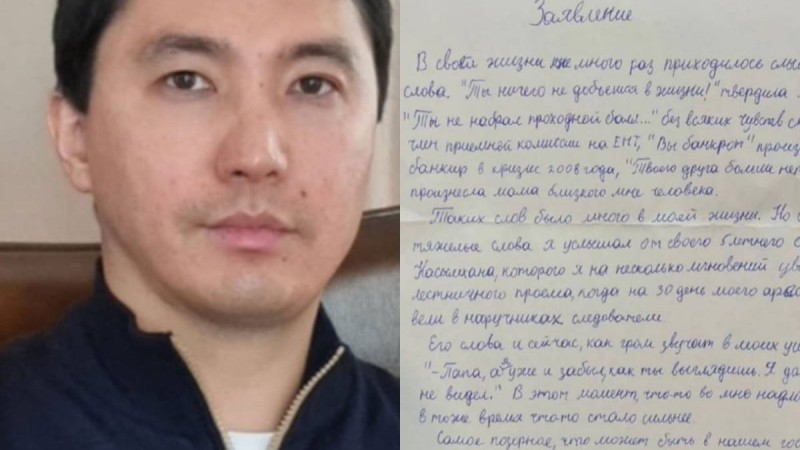 Заявление
В своей жизни мне много раз приходилось слы
слова. "Ты ничего не добьешся в жизни!" твердила
"Ты не набрал проходной балл..." без всяких чувств с
член приемной комисии на ЕНТ, "Вы банкрот" произ
банкир в кризис 2008 года, "Твоего друга больше нет
произнесла мама близкого мне человека.
Таких слов было много в моей жизни. Но
тяжелые слова я услышал от своего 5 летнего
Касымхана, которого я на несколько мгновений
лестничного проема, когда на 30 день моего
вели в наручниках следователи.
Его слова и сейчас, как гром звучат в моих
"-Папа, а я уже и забыл, как ты выглядишь. Я
не видел." В этот момент, что-то во мне
в тоже время что-то стало сильнее.
Самое позорное, что может быть в нашем